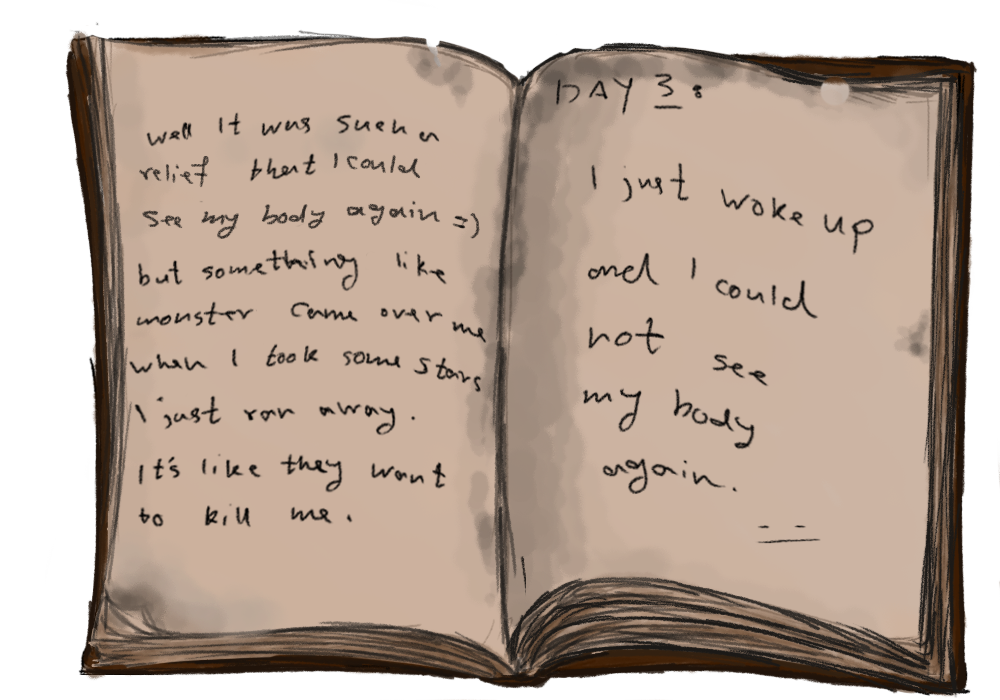 well It was such a
relief that I could
see my body again =)
but something like
monster came over me
when I took some stars
I just ran away.
It's like they want
to kill me.
DAY 3:
I just woke up
and I could
not see
my body
again.